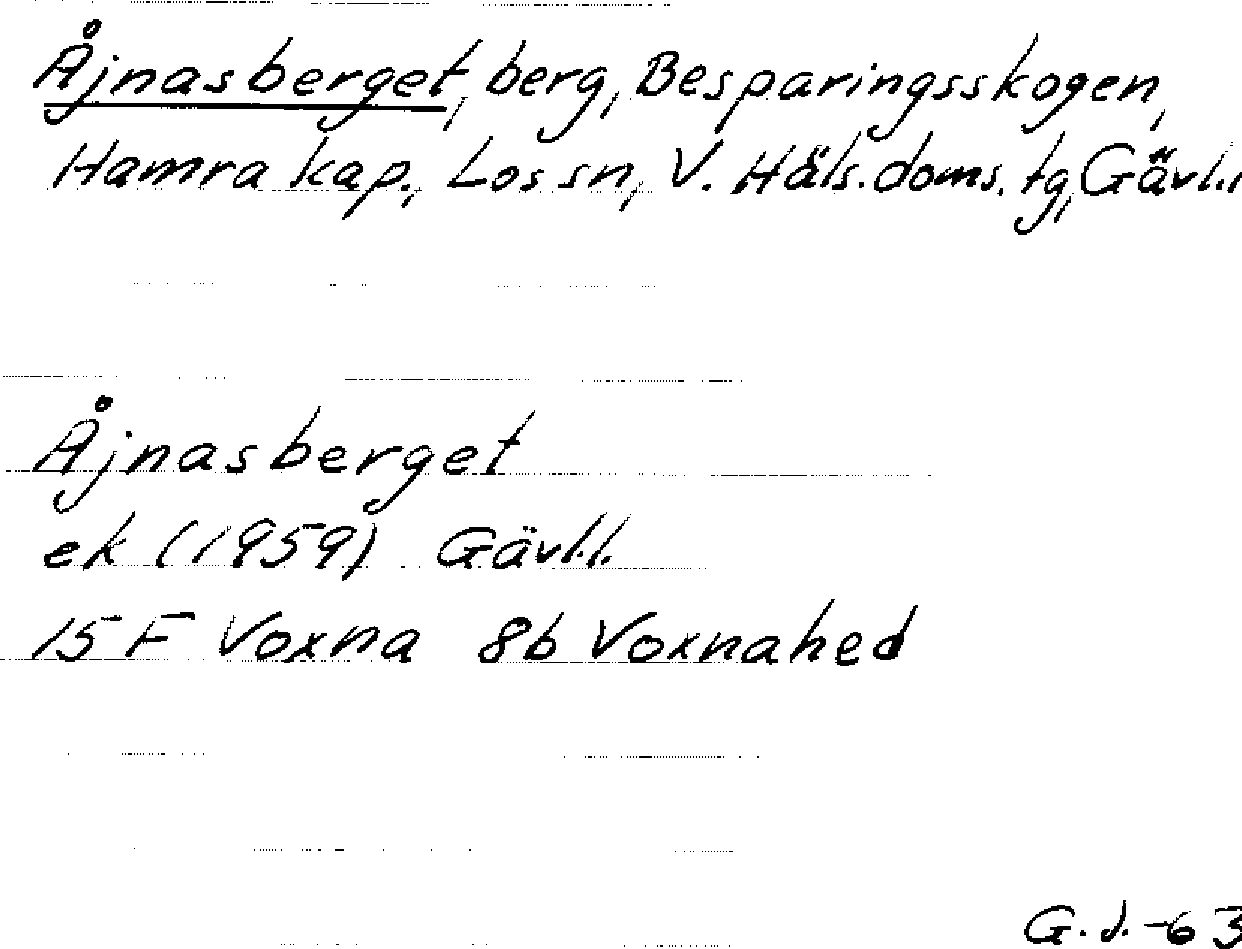 Åjnasberget, berg, Besparingsskogen,
Hamra kap., Los sn, V. Häls. doms. tg, Gävl.l
Åjnasberget
ek (1959) Gävl.l.
15 F Voxna 8b Voxnahed
G.J.-63